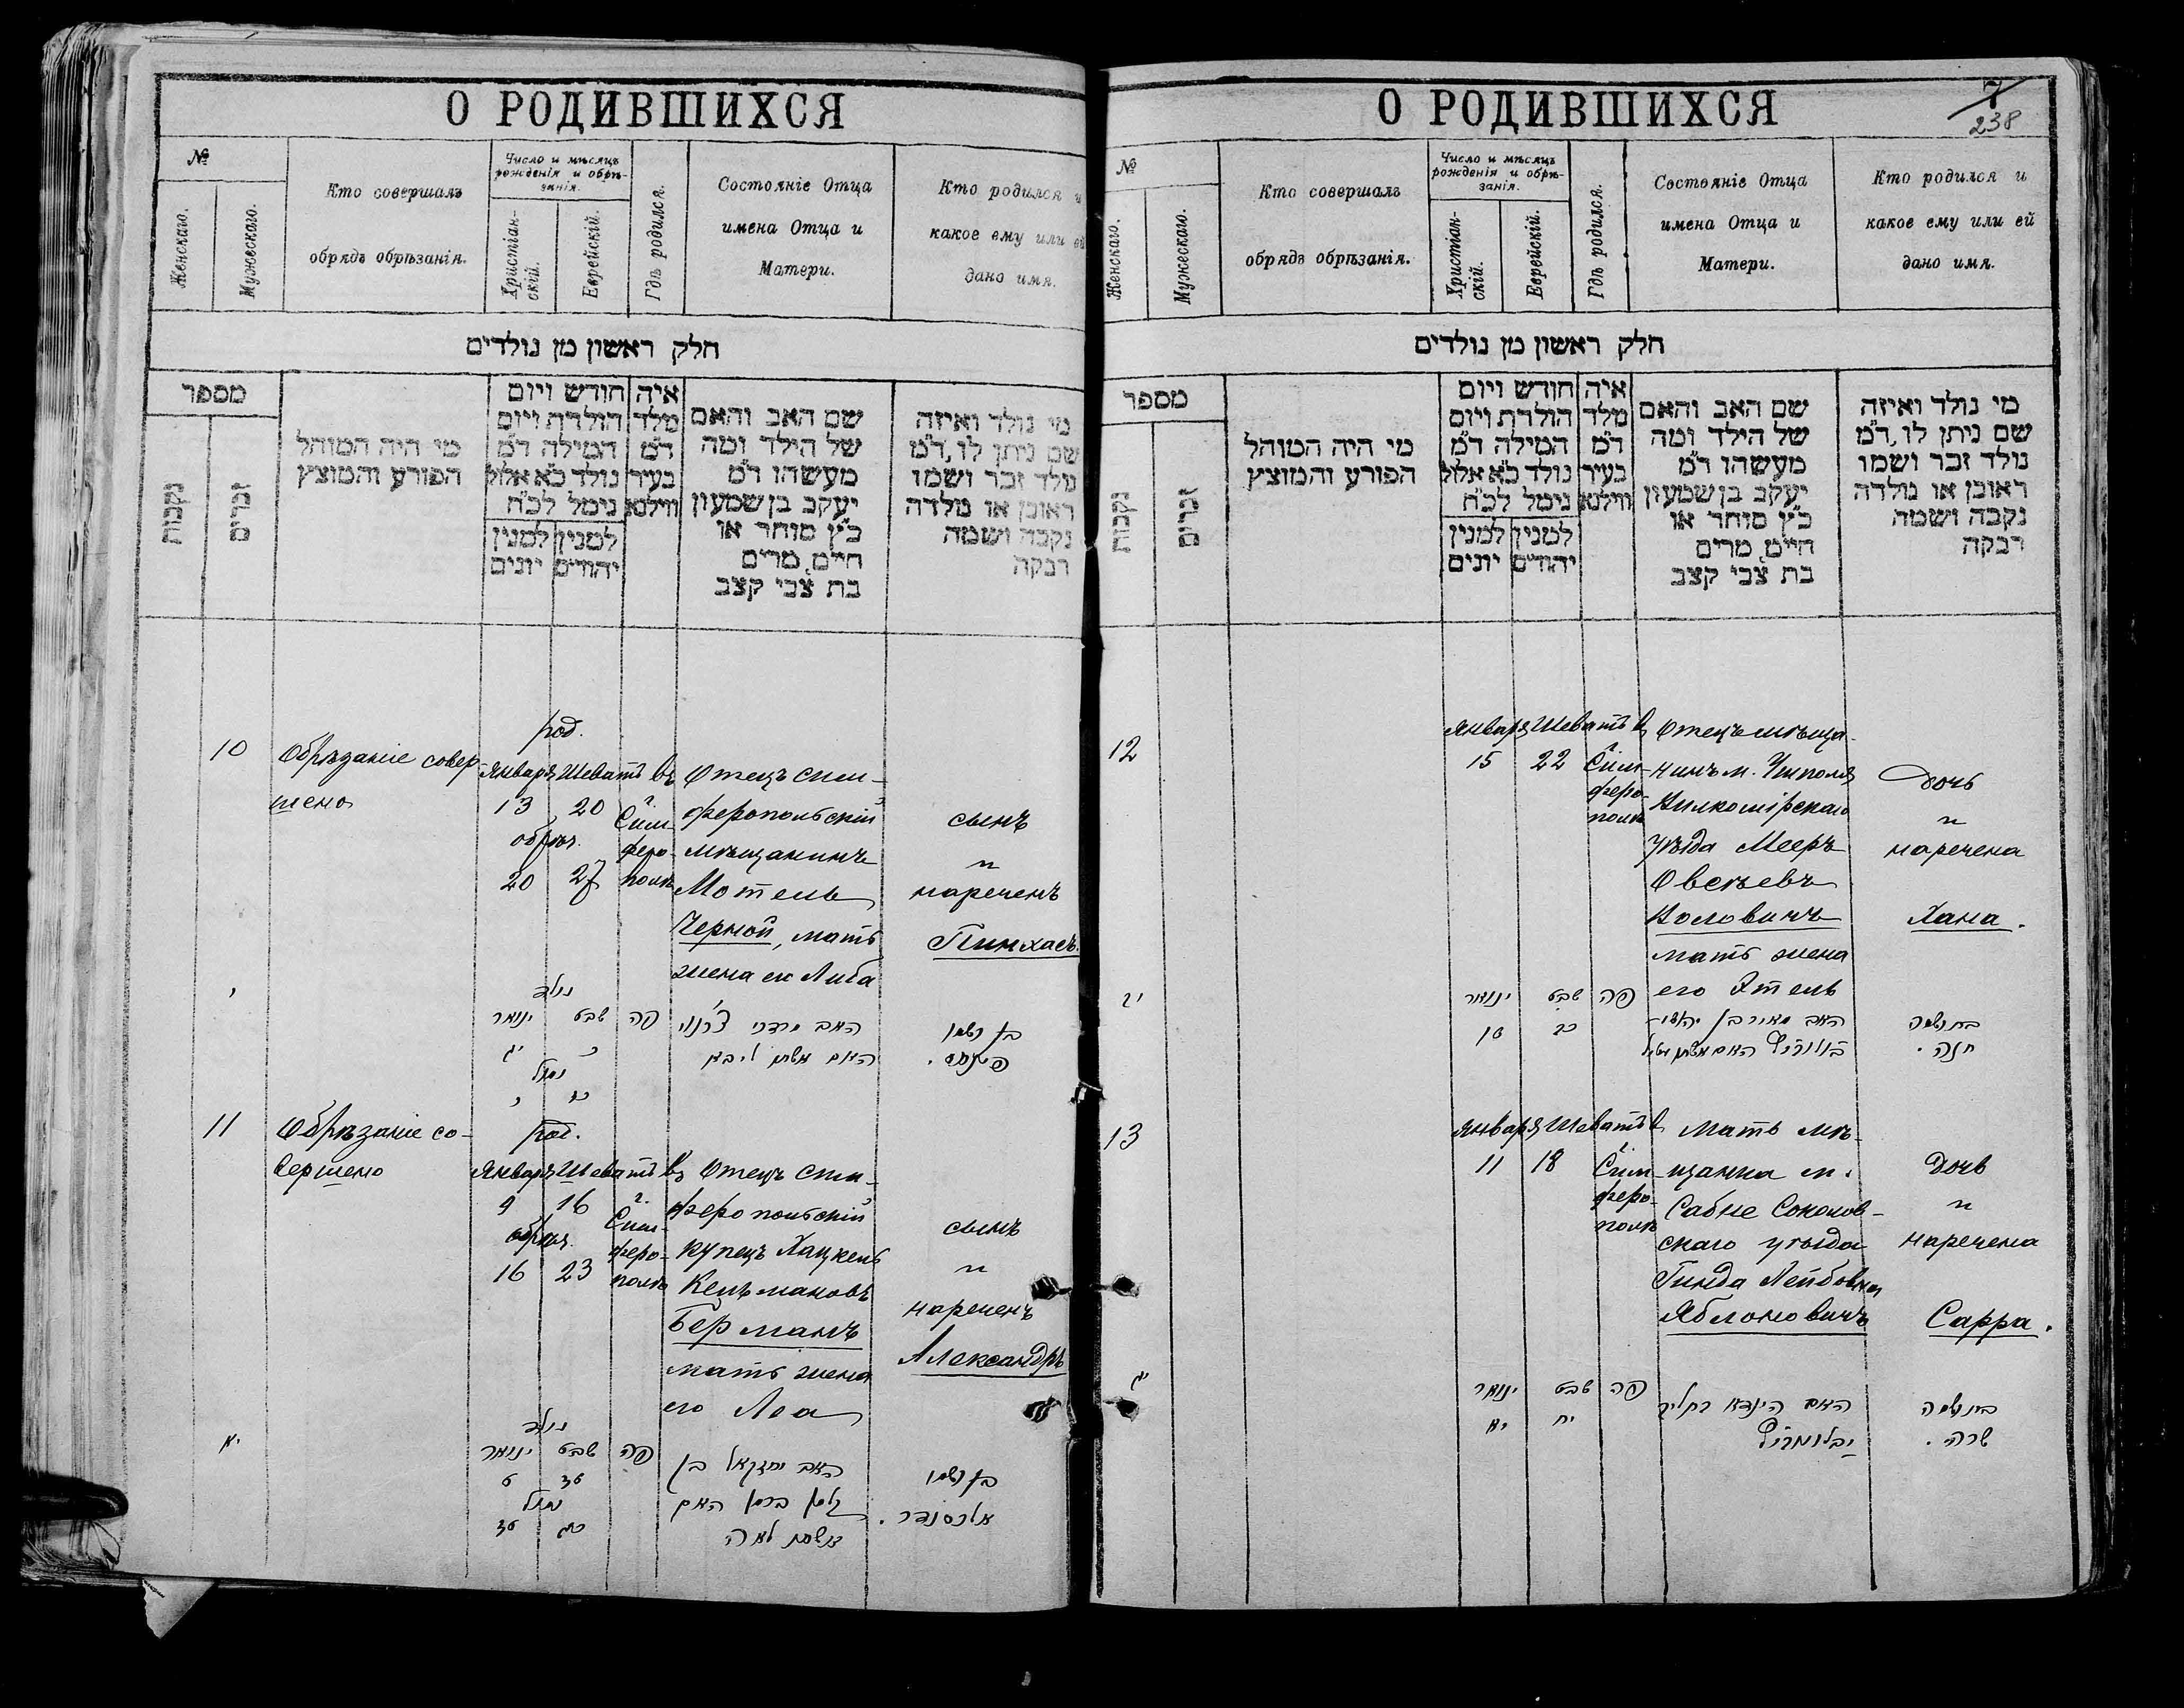 О РОДИВШИХСЯ
№
Женскаго.
Мужескаго.
Кто совершалъ
обрядъ обрѣзанія.
Число и мѣсяцъ
рожденія и обрѣ-
занія.
Христіан-
скій.
Еврейскій.
Гдѣ родился.
Состояніе Отца
имена Отца и
Матери.
Кто родился и
какое ему или ей
дано имя.
חלק ראשון מן נולדים
מספר
נקבות
זכרים
מי היה המוהל
הפורע והמוצץ
חודש ויום
הולדת ויום
המילה ד״מ
נולד כ״א אלול
נימל לכ״ח
למנין
יהודים
למנין
יונים
איה
מלד
ד״מ
בעיר
ווילנא
שם האב והאם
של הילד ומה
מעשהו ד״מ
יעקב בן שמעון
כ״ץ סוחר או
חיים, מרים
בת צבי קצב
מי נולד ואיזה
שם ניתן לו, ד״מ
נולד זכר ושמו
ראובן או נולדה
נקבה ושמה
רבקה
10
Обрѣзаніе совер-
шено
род.
Января Шеватъ
13 20
обрѣз.
20 27
въ
г.
Сим-
феро-
полѣ
Отецъ сим-
феропольскій
мѣщанинъ
Мотель
Черной, мать
жена ек Либа
сынъ
и
нареченъ
Пинхасъ.
י
נולד
ינואר שבט
יג כ
נמול
כ כז
פה
האב מרדכי צ׳רנוי
האם אשתו ליבא
בן ושמו
פינחס.
11
Обрѣзаніе со-
вершено
род.
Января Шеватъ
9 16
обрѣз.
16 23
въ
г.
Сим-
феро-
полѣ
Отецъ сим-
феропольскій
купецъ Хацкель
Кельмановъ
Берманъ
мать жена
его Леа
сынъ
и
нареченъ
Александръ
יא
נולד
ינואר שבט
ט טז
נמול
טז כג
פה
האב יחזקאל בן
קלמן ברמן האם
אשתו לאה
בן ושמו
אלכסנדר.
О РОДИВШИХСЯ
7
238
№
Женскаго.
Мужескаго.
Кто совершалъ
обрядъ обрѣзанія.
Число и мѣсяцъ
рожденія и обрѣ-
занія.
Христіан-
скій.
Еврейскій.
Гдѣ родился.
Состояніе Отца
имена Отца и
Матери.
Кто родился и
какое ему или ей
дано имя.
חלק ראשון מן נולדים
מספר
נקבות
זכרים
מי היה המוהל
הפורע והמוצץ
חודש ויום
הולדת ויום
המילה ד״מ
נולד כ״א אלול
נימל לכ״ח
למנין
יהודים
למנין
יונים
איה
מלד
ד״מ
בעיר
ווילנא
שם האב והאם
של הילד ומה
מעשהו ד״מ
יעקב בן שמעון
כ״ץ סוחר או
חיים, מרים
בת צבי קצב
מי נולד ואיזה
שם ניתן לו, ד״מ
נולד זכר ושמו
ראובן או נולדה
נקבה ושמה
רבקה
12
Января Шеватъ
15 22
въ
г.
Сим-
феро-
полѣ
Отецъ мѣща-
нинъ м. Ушполя
Вилкомірскаго
уѣзда Мееръ
Овсѣевъ
Воловичъ
мать жена
его Этель
дочь
и
нарѣчена
Хана.
יב
ינואר שבט
טו כב
פה
האב מאיר בן
האם אשתו
בת ושמה
חנה.
13
Января Шеватъ
11 18
въ
г.
Сим-
феро-
полѣ
Мать мѣ-
щанка м.
Сабне Соколов-
скаго уѣзда
Гинда Лейбовна
Яблоновичъ
Дочь
и
наречена
Сарра.
יג
ינואר שבט
יא יח
פה
האם הינדא
בת ושמה
שרה.